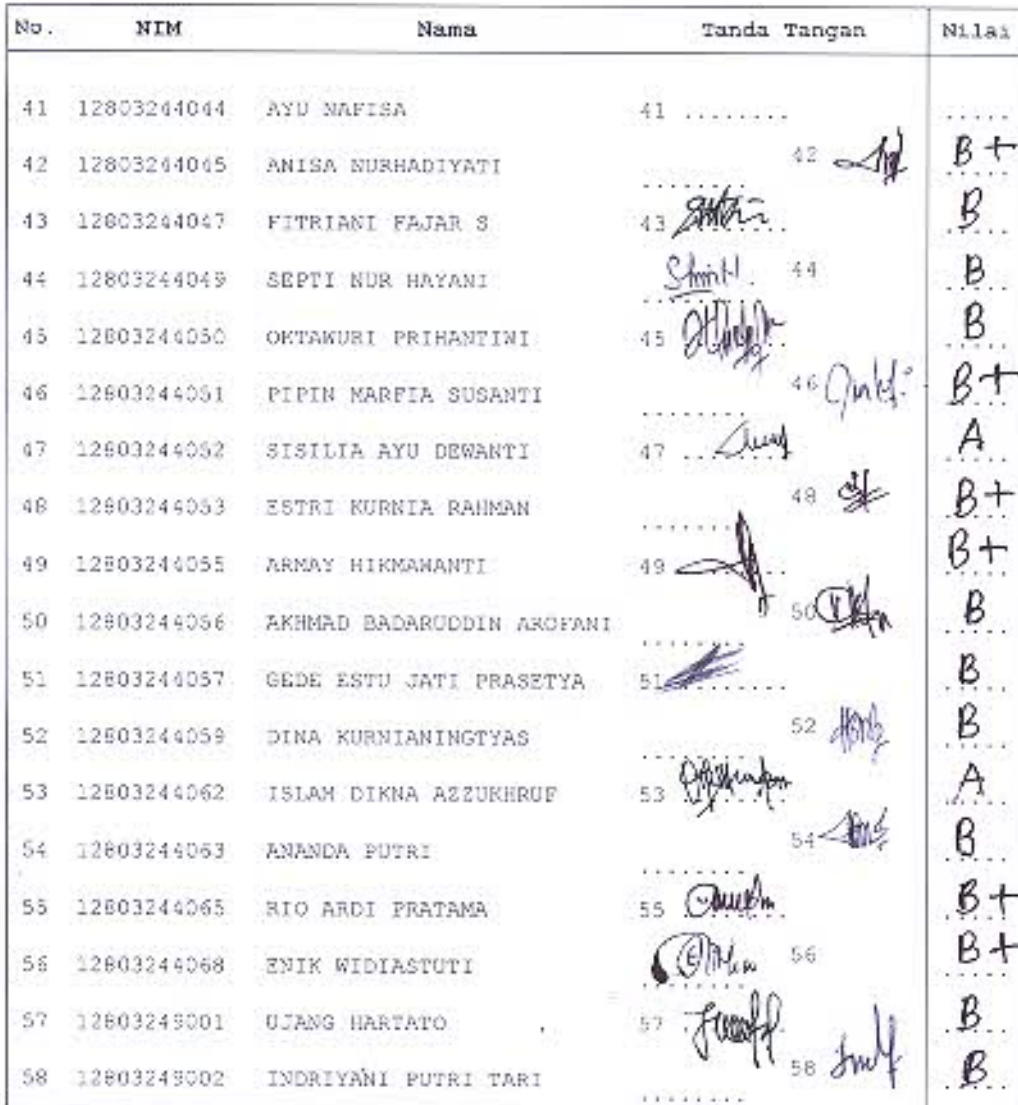 No. NIM Nama Tanda Tangan Nilai
41 12803244044 AYU NAFISA 41 ......... .....
42 12803244045 ANISA NURHADIYATI 42 B+
43 12803244047 FITRIANI FAJAR S 43 B
44 12803244049 SEPTI NUR HAYANI 44 B
45 12803244050 OKTAWURI PRIHANTINI 45 B
46 12803244051 PIPIN MARFIA SUSANTI 46 B+
47 12803244052 SISILIA AYU DEWANTI 47 A
48 12803244053 ESTRI KURNIA RAHMAN 48 B+
49 12803244055 ARMAY HIKMAWANTI 49 B+
50 12803244056 AKHMAD BADARUDDIN AROFANI 50 B
51 12803244057 GEDE ESTU JATI PRASETYA 51 B
52 12803244059 DINA KURNIANINGTYAS 52 B
53 12803244062 ISLAM DIKNA AZZUKHRUF 53 A
54 12803244063 ANANDA PUTRI 54 B
55 12803244065 RIO ARDI PRATAMA 55 B+
56 12803244068 ENIK WIDIASTUTI 56 B+
57 12803249001 UJANG HARTATO 57 B
58 12803249002 INDRIYANI PUTRI TARI 58 B